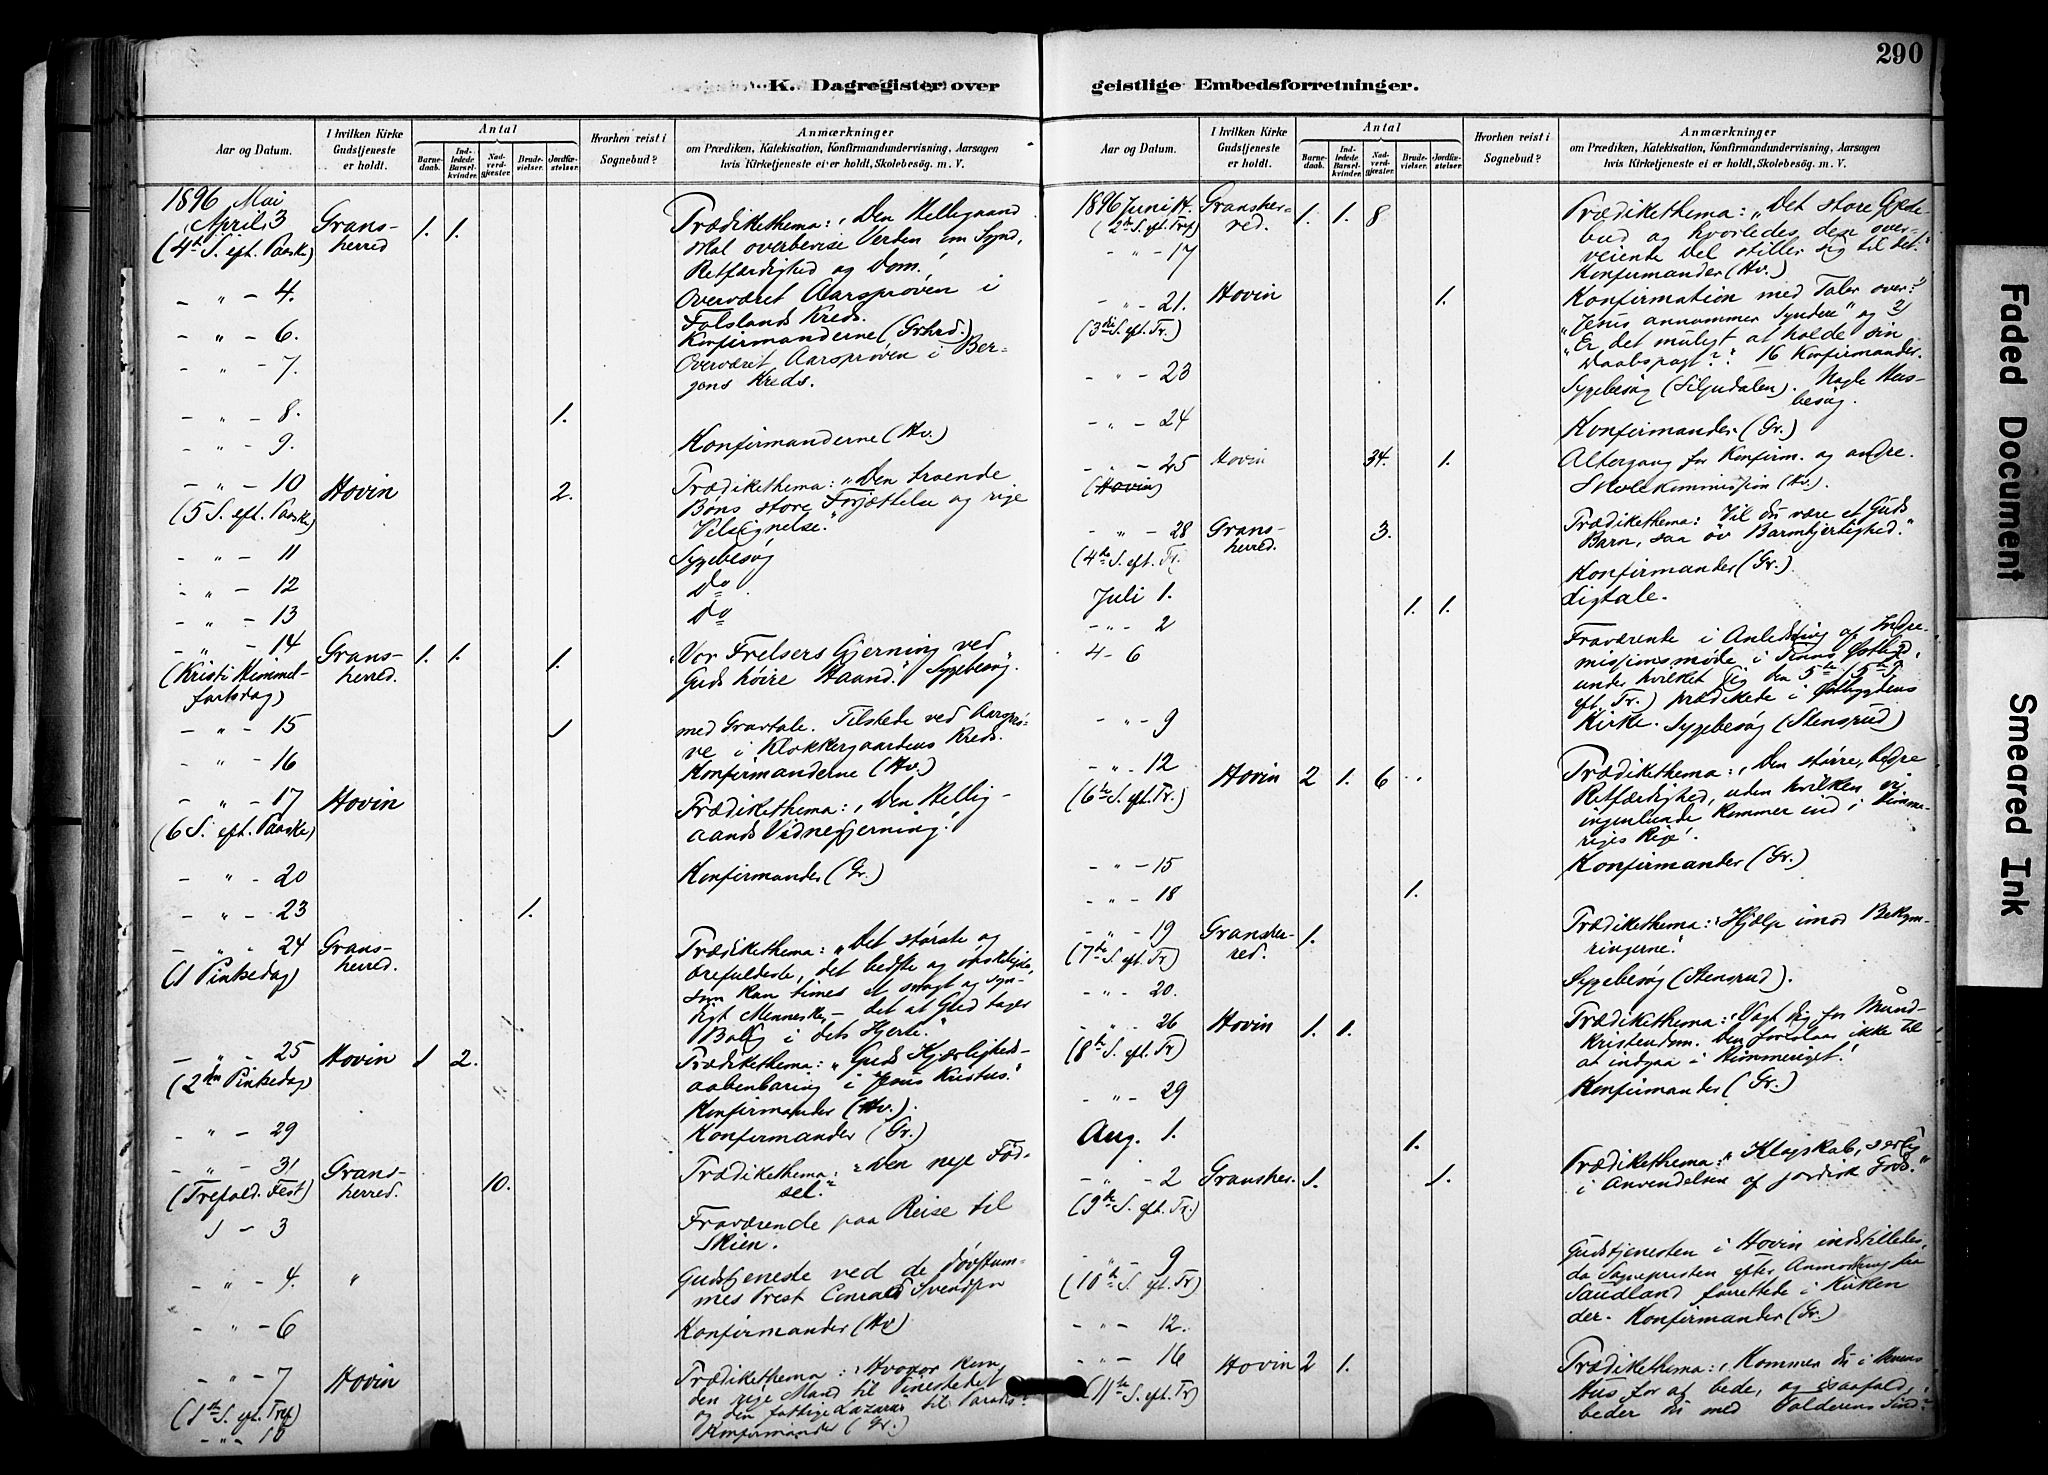 290
K. Dagregister over
geistlige Embedsforretninger.
Aar og Datum.
I hvilken Kirke Gudstjeneste er holdt.
Antal
Barnedaab.
Indledede Barselkvinder.
Nadverdgjester.
Brudevielser.
Jordfæstelser.
Hvorhen reist i Sognebud?
Anmærkninger
om Prædiken, Katekisation, Konfirmandundervisning, Aarsagen
hvis Kirketjeneste ei er holdt, Skolebesøg. m. V.
1896 Mai
April 3 Grans- 1. 1. Prædikethema: "Den Helligaand
(4de S. eft. Paaske) herred skal overbevise Verden om Synd,
Retfærdighed og Dom."
- " - 4. Overværet Aarsprøven i
Folslands Kreds.
- " - 6. Konfirmanderne (Grhrd.)
- " - 7. Overværet Aarsprøven i Ber-
gens Kreds.
- " - 8. 1.
- " - 9. Konfirmanderne (Hv.)
- " - 10 Hovin 2. Prædikethema: "Den troende
(5 S. eft. Paaske) Bøns store Forjættelse og rige
Velsignelse."
- " - 11 Sygebesøg
- " - 12 Do
- " - 13 Do
- " - 14 Grans- 1. 1. 1. "Vor Frelsers Gjerning ved
(Kristi Himmel- herred. Guds høire Haand." Sygebesøg.
fartsdag)
- " - 15 1 med Gravtale. Tilstede ved Aarsprø-
ve i Klokkergaardens Kreds.
- " - 16 Konfirmanderne (Hv.)
- " - 17 Hovin Prædikethema: "Den Hellig-
(6 S. eft. Paaske) aands Vidnegjerning."
- " - 20 Konfirmander (Gr.)
- " - 23 1.
- " - 24 Grans- Prædikethema: "Det største og
(1 Pinsedag) herred. ærefuldeste, det bedste og ønskeligste,
som kan times et svagt og syn-
digt Menneske, - det at Gud tager
Bolig i dets Hjerte."
- " - 25 Hovin 1 2. Prædikethema: "Guds Kjærligheds-
(2den Pinsedag) aabenbaring i Jesus Kristus."
Konfirmander (Hv.).
- " - 29 Konfirmander (Gr.)
- " - 31 Grans- 10. Prædikethema: "Den nye Fød-
(Trefold. Fest) herred. sel."
1 - 3 Fraværende paa Reise til
Skien.
- " - 4. " Gudstjeneste ved de døvstum-
mes Prest Conrad Svendsen
- " - 6 Konfirmander (Hv)
- " - 7 Hovin Prædikethema: "Hvorfor kom
(1ste S. eft. Tref) den rige Mand til Pinestedet
og den fattige Lazarus til Paradis?
- " - 10 Konfirmander (Gr.)
Aar og Datum.
I hvilken Kirke Gudstjeneste er holdt.
Antal
Barnedaab.
Indledede Barselkvinder.
Nadverdgjester.
Brudevielser.
Jordfæstelser.
Hvorhen reist i Sognebud?
Anmærkninger
om Prædiken, Katekisation, Konfirmandundervisning, Aarsagen
hvis Kirketjeneste ei er holdt, Skolebesøg. m. V.
1896 Juni 14. Gransher- 1. 1. 8 Prædikethema: "Det store Gjæste-
(2den S. eft. Tref) red. bud og hvorledes den over-
veiende Del stiller sig til det."
- " - 17 Konfirmander (Hv.)
- " - 21. Hovin 1. Konfirmation med Taler over: 1)
(3die S. eft. Tr.) "Jesus annammer Syndere" og 2)
"Er det muligt at holde sin
Daabspagt?" 16 Konfirmander.
- " - 23 Sygebesøg (Siljudalen). Nogle Hus-
besøg.
- " - 24 Konfirmander (Gr.)
- " - 25 Hovin 34. 1. Altergang for Konfirm. og andre.
(Hovin) Skolekommission (Hv.).
- " - 28 Grans- 3. Prædikethema: Vil du være et Guds
(4de S. eft. Tr. herred. Barn, saa øv Barmhjertighed."
Juli 1. Konfirmander (Gr.)
- " - 2 1. 1. Ligtale.
4 - 6 Fraværende i Anledning af Indre-
missionsmøde i Tinns Østbygd,
under hvilket jeg den 5te (5te S.
eft. Tr.) prædikede i Østbygdens
- " - 9 Kirke. Sygebesøg (Stensrud)
- " - 12 Hovin 2 1. 6 Prædikethema: "Den større, bedre
(6te S. eft. Tr.) Retfærdighed, uden hvilken vi
ingenlunde kommer ind i Himme-
riges Rige."
- " - 15 Konfirmander (Gr.)
- " - 18 1.
- " - 19 Gransher- 1. Prædikethema: "Hjælp imod Bekym-
(7de S. eft. Tr) red. ringerne."
- " - 20. Sygebesøg (Stensrud).
- " - 26 Hovin 1. 1. Prædikethema: "Vogt dig for Mund-
(8de S. eft. Tr) kristendom. Den forslaar ikke til
at indgaa i Himmeriget."
- " - 29 Konfirmander (Gr.)
Aug. 1. 1.
- " - 2 Gransher. 1. 1. Prædikethema: "Klogskab, særlig
(9de S. eft. Tr.) i Anvendelsen af jordisk Gods."
- " - 9 Gudstjenesten i Hovin indstilledes,
(10de S. eft. Tr) da Sognepresten efter Anmodning fra
Saudland forrettede i Kirken
- " - 12. der. Konfirmander (Gr.)
- " - 16 Hovin 2 1. Prædikethema: "Kommer du i Herrens
(11te S. eft. Tr) Hus for at bede, og isaafald,
beder du med Tolderens Sind?
Faded Document
Smeared Ink